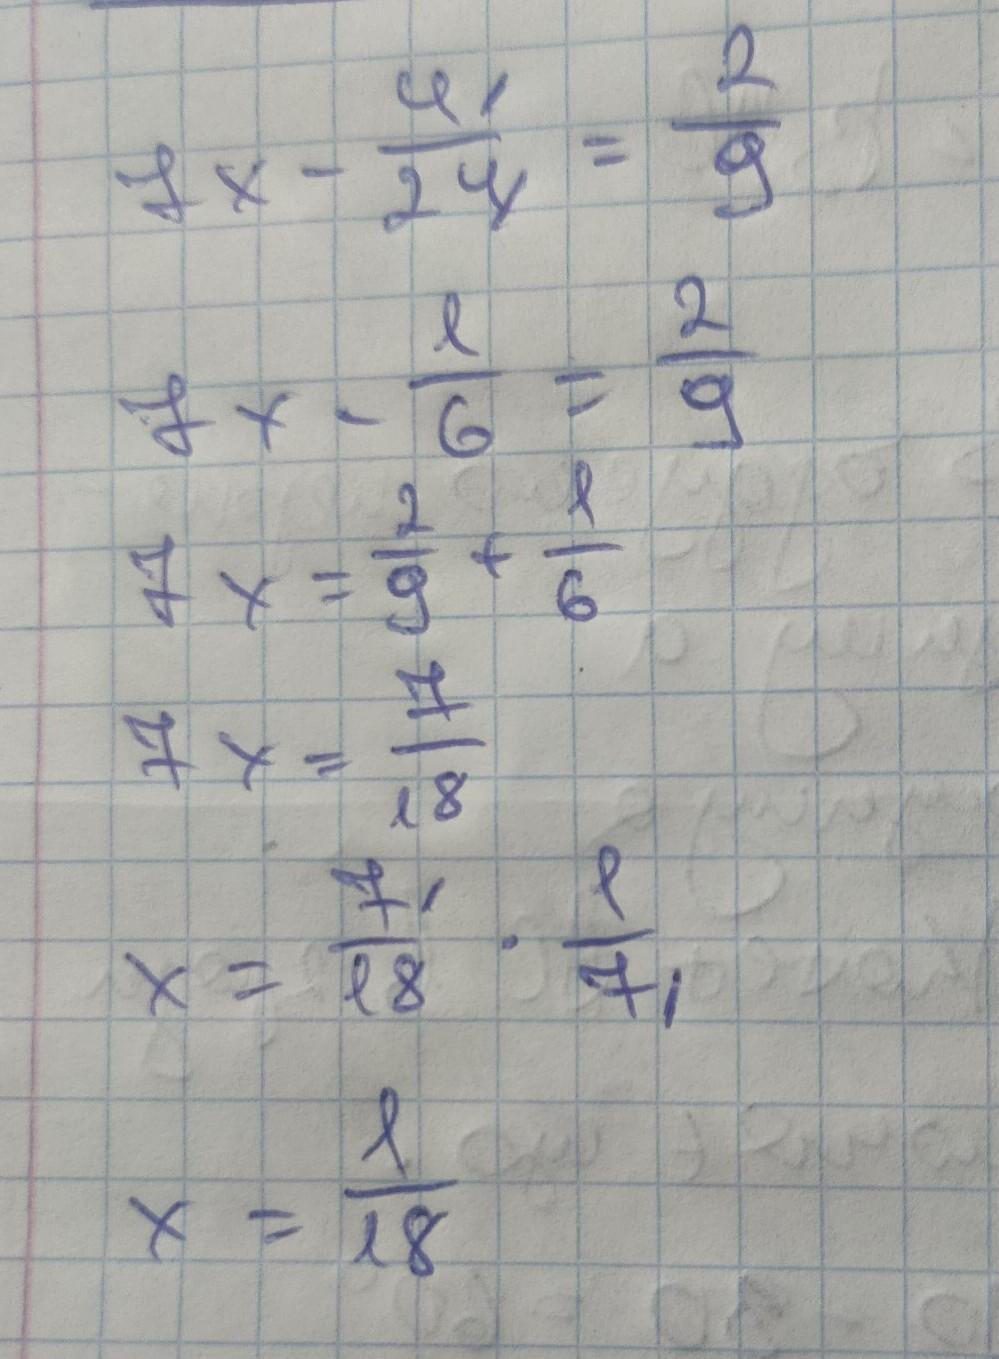 7x - 4/24 = 2/9
7x - 1/6 = 2/9
7x = 2/9 + 1/6
7x = 7/18
x = 7/18 · 1/7
x = 1/18